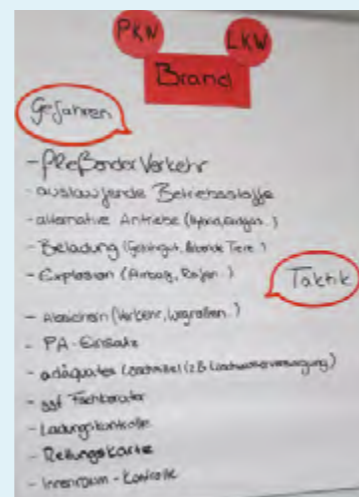 PKW
LKW
Brand
Gefahren
- fließender Verkehr
- auslaufende Betriebsstoffe
- alternative Antriebe (Hybrid, Erdgas..)
- Beladung (Gefahrgut, lebende Tiere..)
- Explosion (Airbag, Reifen..)
Taktik
- Absichern (Verkehr, Wegrollen..)
- PA-Einsatz
- adäquates Löschmittel (z.B. Löschwasserversorgung)
- ggf. Fachberater
- Ladungskontrolle
- Rettungskarte
- Innenraum-Kontrolle